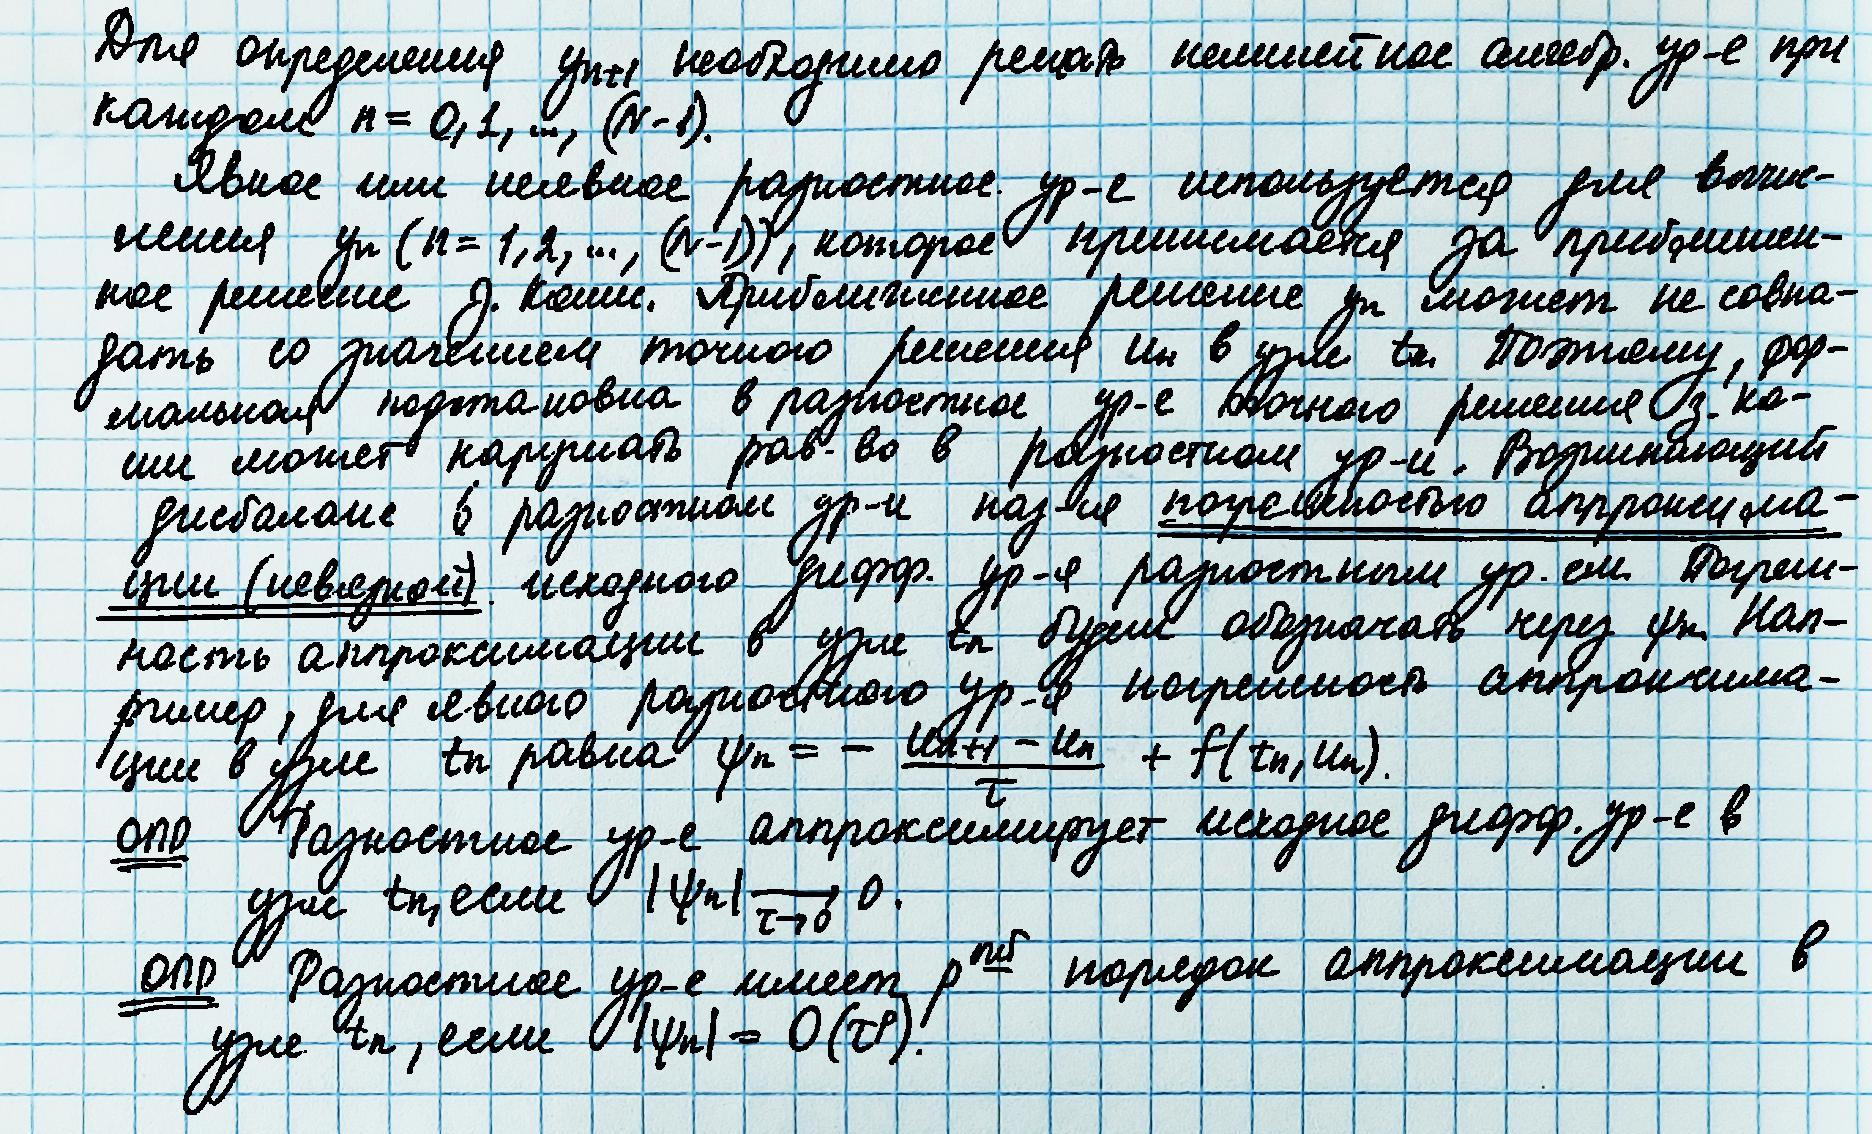 Для определения yₙ₊₁ необходимо решать нелинейное алгебр. ур-е при
каждом n = 0,1,..., (N-1).
Явное или неявное разностное ур-е используется для вычис-
ления yₙ (n = 1,2,..., (N-1)), которое принимается за приближен-
ное решение з. Коши. Приближенное решение yₙ может не совпа-
дать со значением точного решения uₙ в узле tₙ. Поэтому, фор-
мальная подстановка в разностное ур-е точного решения з. Ко-
ши может нарушать рав-во в разностном ур-и. Возникающий
дисбаланс в разностном ур-и наз-ся погрешностью аппроксима-
ции (невязкой) исходного дифф. ур-я разностным ур-ем. Погреш-
ность аппроксимации в узле tₙ будем обозначать через ψₙ. Нап-
ример, для явного разностного ур-я погрешность аппроксима-
ции в узле tₙ равна ψₙ = - (uₙ₊₁ - uₙ)/τ + f(tₙ, uₙ).
ОПР Разностное ур-е аппроксимирует исходное дифф. ур-е в
узле tₙ, если |ψₙ| ⟶ 0.
τ→0
ОПР Разностное ур-е имеет pᵗʸᵘ порядок аппроксимации в
узле tₙ, если |ψₙ| = O(τᵖ).